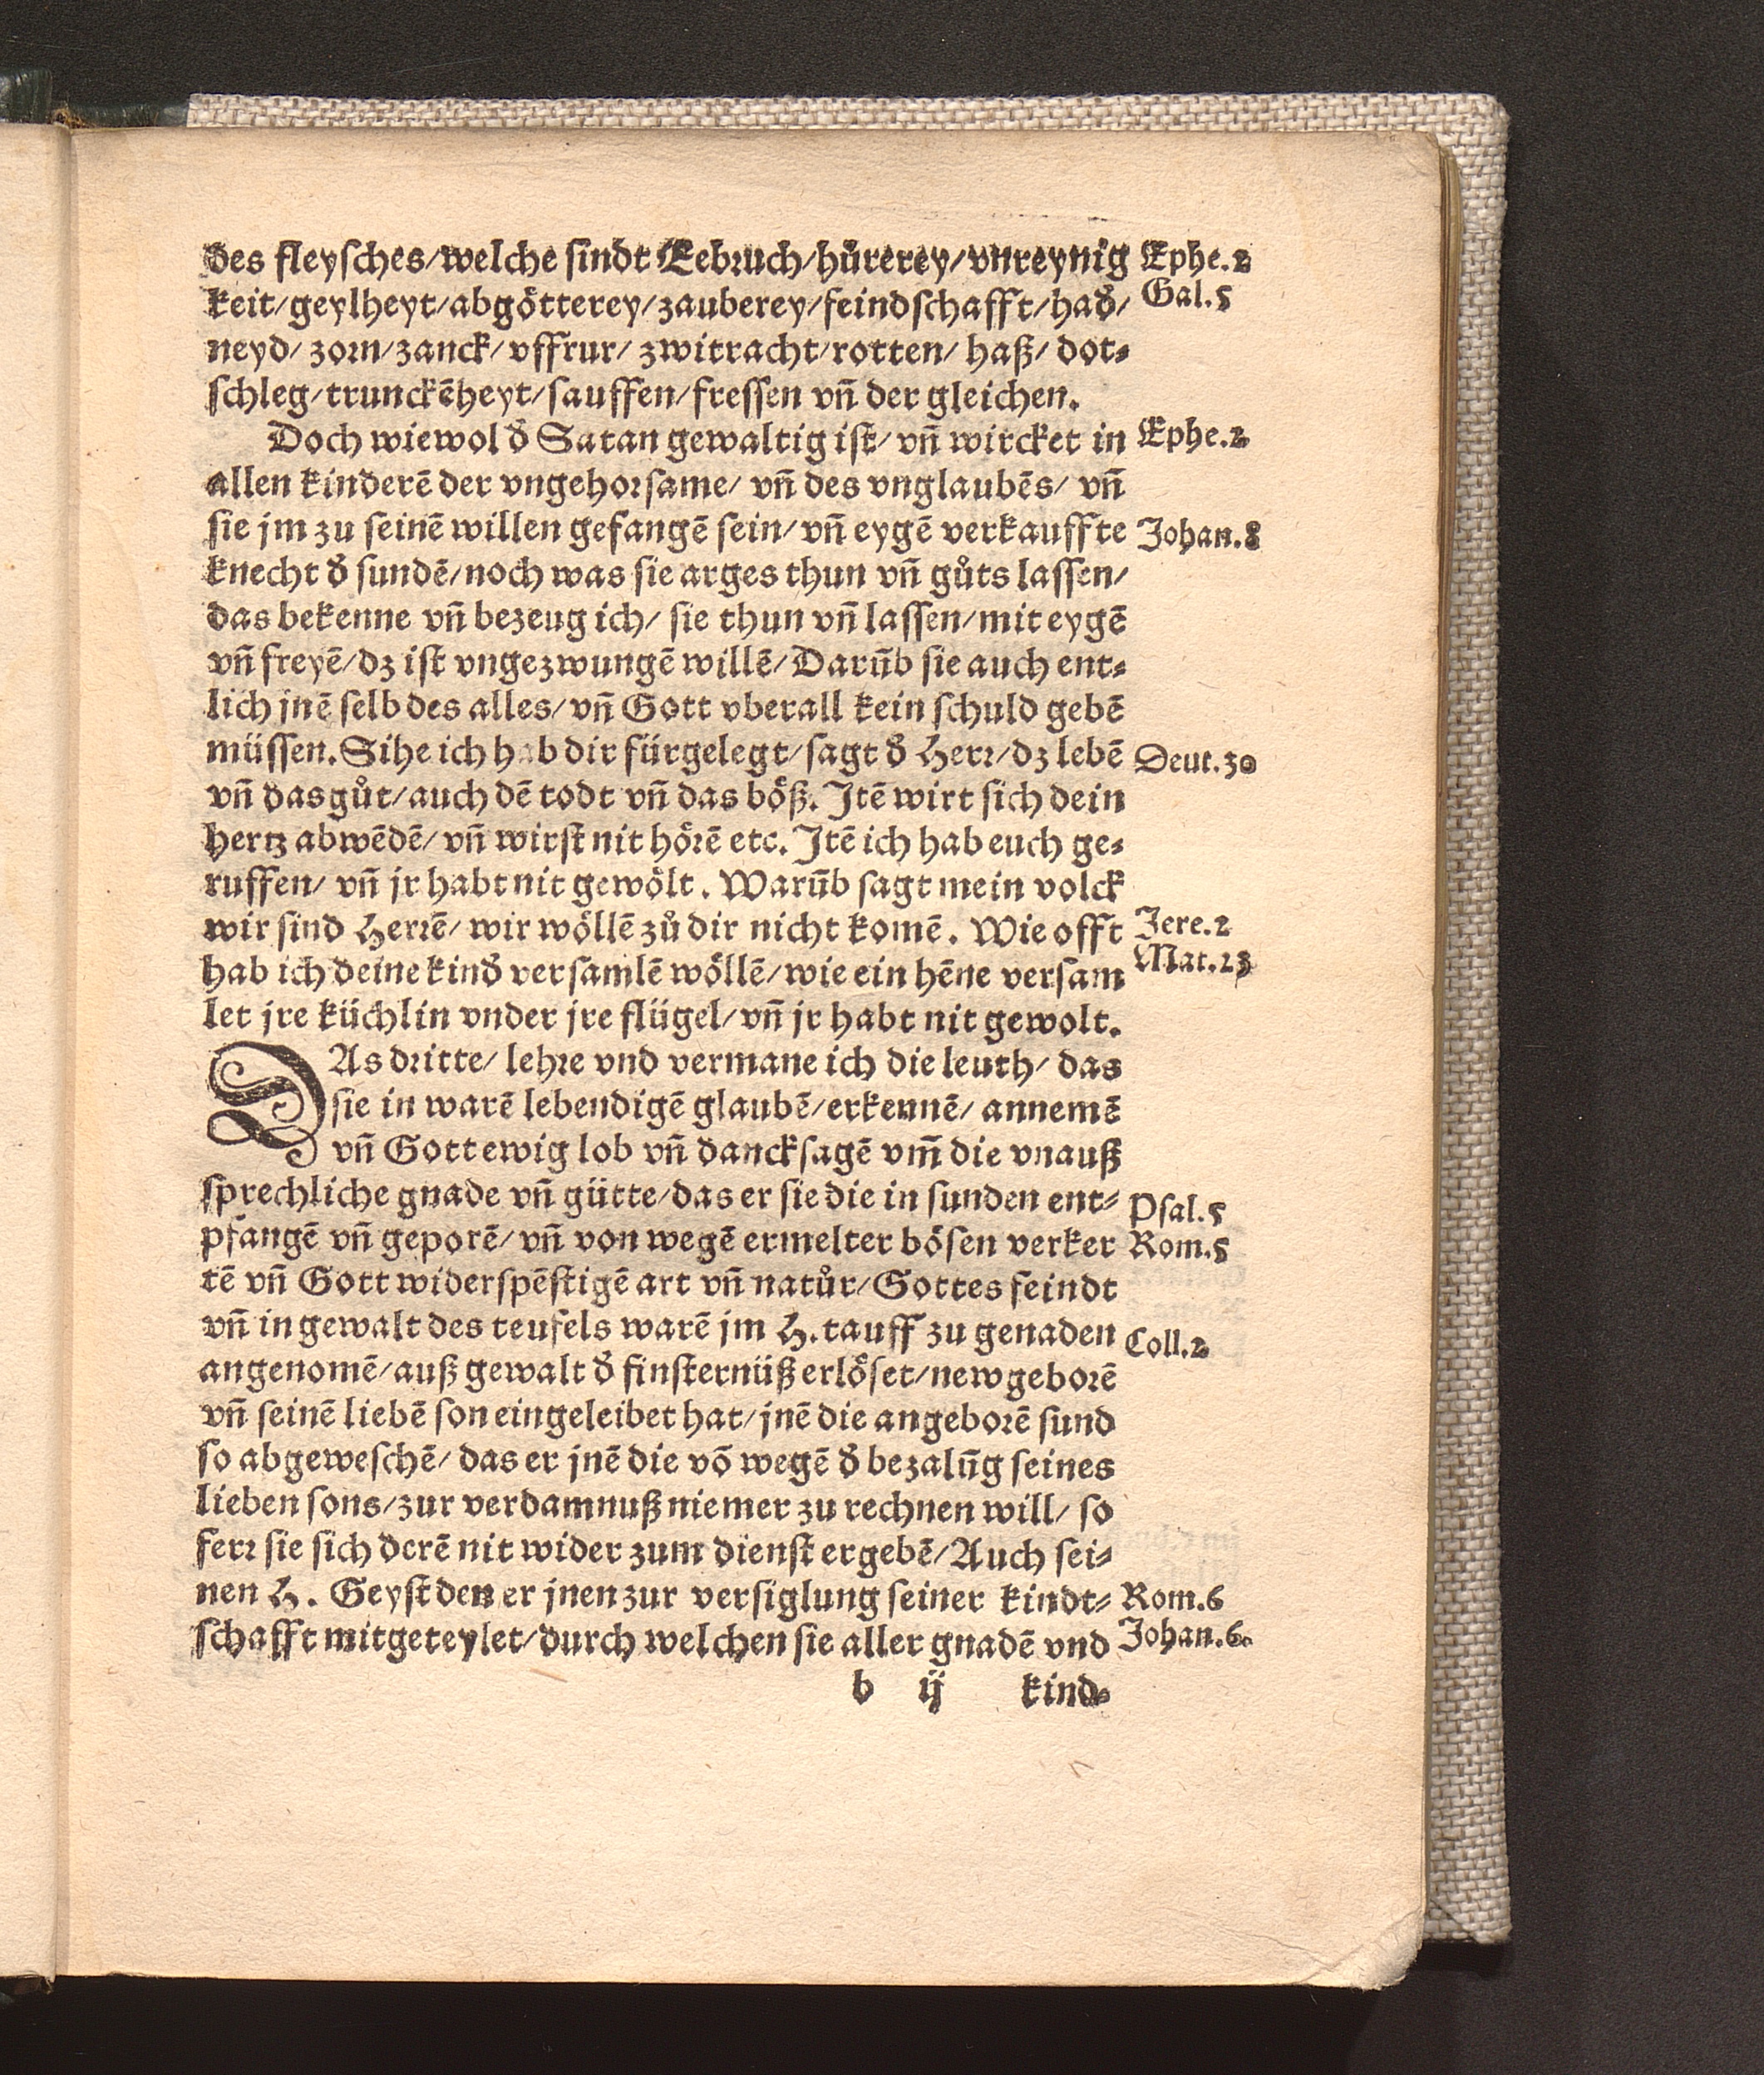 des fleyſches/welche ſindt Eebꝛuch/hůrerey/vnreynig
keit/geylheyt/abgötterey/zauberey/feindſchafft/had̕/
neyd/zoꝛn/zanck/vffrur/zwitracht/rotten/haß/dot⸗
ſchleg/trunckēheyt/ſauffen/freſſen vn̄ der gleichen.
Doch wiewol d̕ Satan gewaltig iſt/vn̄ wircket in
allen kinderē der vngehoꝛſame/vn̄ des vnglaubēs/vn̄
ſie jm zu ſeinē willen gefangē ſein/vn̄ eygē verkauffte
knecht d̕ ſundē/noch was ſie arges thun vn̄ gůts laſſen/
das bekenne vn̄ bezeug ich/ſie thun vn̄ laſſen/mit eygē
vn̄ freyē/dz iſt vngezwungē willē/Darūb ſie auch ent⸗
lich jnē ſelb des alles/vn̄ Gott vberall kein ſchuld gebē
müſſen. Sihe ich hab dir fürgelegt/ſagt d̕ Herꝛ/dz lebē
vn̄ das gůt/auch dē todt vn̄ das böß. Itē wirt ſich dein
hertz abwēdē/vn̄ wirſt nit höꝛē etc. Itē ich hab euch ge⸗
ruffen/vn̄ jr habt nit gewölt. Warūb ſagt mein volck
wir ſind Herꝛē/wir wöllē zů dir nicht komē. Wie offt
hab ich deine kind̕ verſamlē wöllē/wie ein hēne verſam
let jre küchlin vnder jre flügel/vn̄ jr habt nit gewolt.
DAs dꝛitte/lehꝛe vnd vermane ich die leuth/das
ſie in warē lebendigē glaubē/erkennē/annemē
vn̄ Gott ewig lob vn̄ danckſagē vm̄ die vnauß
ſprechliche gnade vn̄ gütte/das er ſie die in ſunden ent⸗
pfangē vn̄ geporē/vn̄ von wegē ermelter böſen verker
tē vn̄ Gott widerſpēſtigē art vn̄ natůr/Gottes feindt
vn̄ in gewalt des teufels warē jm H. tauff zu genaden
angenomē/auß gewalt d̕ finſternüß erlöſet/new geboꝛē
vn̄ ſeinē liebē ſon eingeleibet hat/jnē die angeboꝛē ſund
ſo abgeweſchē/das er jnē die vō wegē d̕ bezalūg ſeines
lieben ſons/zur verdamnuß niemer zu rechnen will/ſo
ferꝛ ſie ſich derē nit wider zum dienſt ergebē/Auch ſei⸗
nen H. Geyſt den er jnen zur verſiglung ſeiner kindt⸗
ſchafft mitgeteylet/durch welchen ſie aller gnadē vnd
b ij kind⸗
Ephe.2
Gal.5
Ephe.2
Johan.8
Deut.30
Jere.2
Mat.23
Pſal.5
Rom.5
Coll.2
Rom.6
Johan.6.